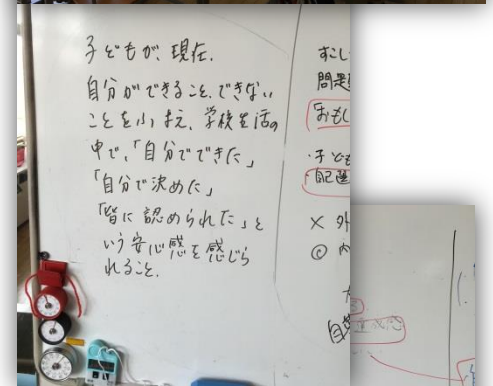 子どもが、現在、
自分ができること、できない
ことをふまえ、学校生活の
中で、「自分でできた」
「自分で決めた」
「皆に認められた」と
いう安心感を感じら
れること。
すこし
問題
おもし
・子ども
・自己選
× 外
◎ 内
自尊